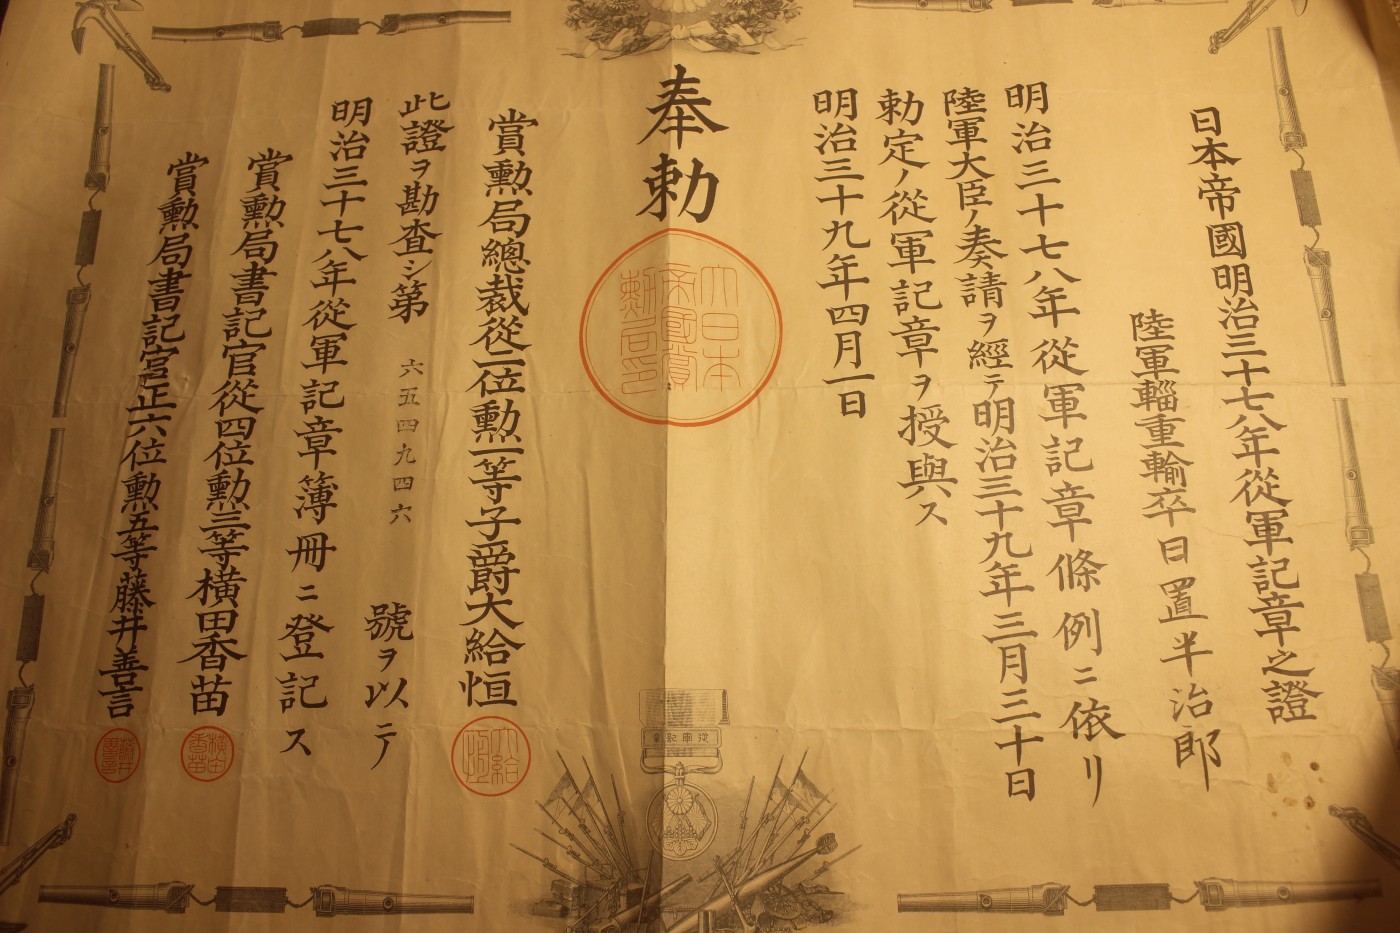 日本帝國明治三十七八年從軍記章之證
陸軍輜重輸卒日置半治郎
明治三十七八年從軍記章條例ニ依リ
陸軍大臣ノ奏請ヲ經テ明治三十九年三月三十日
勅定ノ從軍記章ヲ授與ス
明治三十九年四月一日
奉勅
大日本
帝國賞
勲局印
賞勲局總裁從二位勲一等子爵大給恒
大給
恒
此證ヲ勘査シ第六五四九四六號ヲ以テ
明治三十七八年從軍記章簿冊ニ登記ス
賞勲局書記官從四位勲三等横田香苗
横田
香苗
賞勲局書記官正六位勲五等藤井善言
藤井
善言
章記軍從